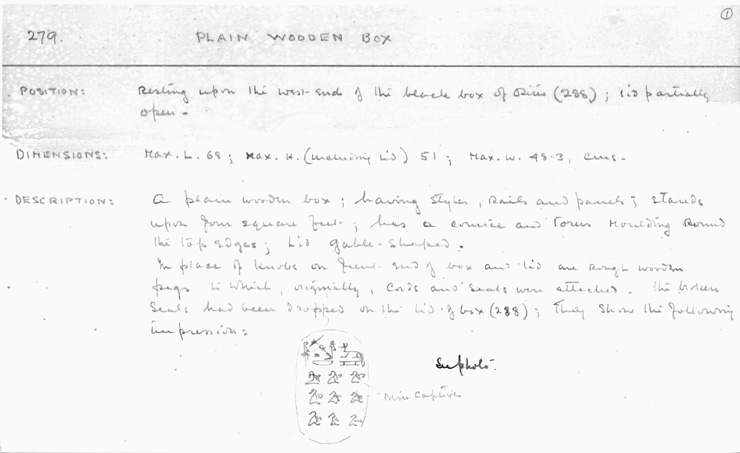 ①
279. PLAIN WOODEN BOX
POSITION: Resting upon the west end of the black box of Osiris (288); lid partially
open -
DIMENSIONS: Max. L. 68; Max. H. (including lid) 51; Max. W. 48.3, cms.
DESCRIPTION: A plain wooden box; having styles, rails and panels; stands
upon four square feet; has a cornice and torus moulding round
the top edges; lid gable-shaped.
In place of knobs on front end of box and lid are rough wooden
pegs to which, originally, cords and seals were attached. The broken
seals had been dropped on the lid of box (288); they show the following
impression:
See photo.
Nine captives